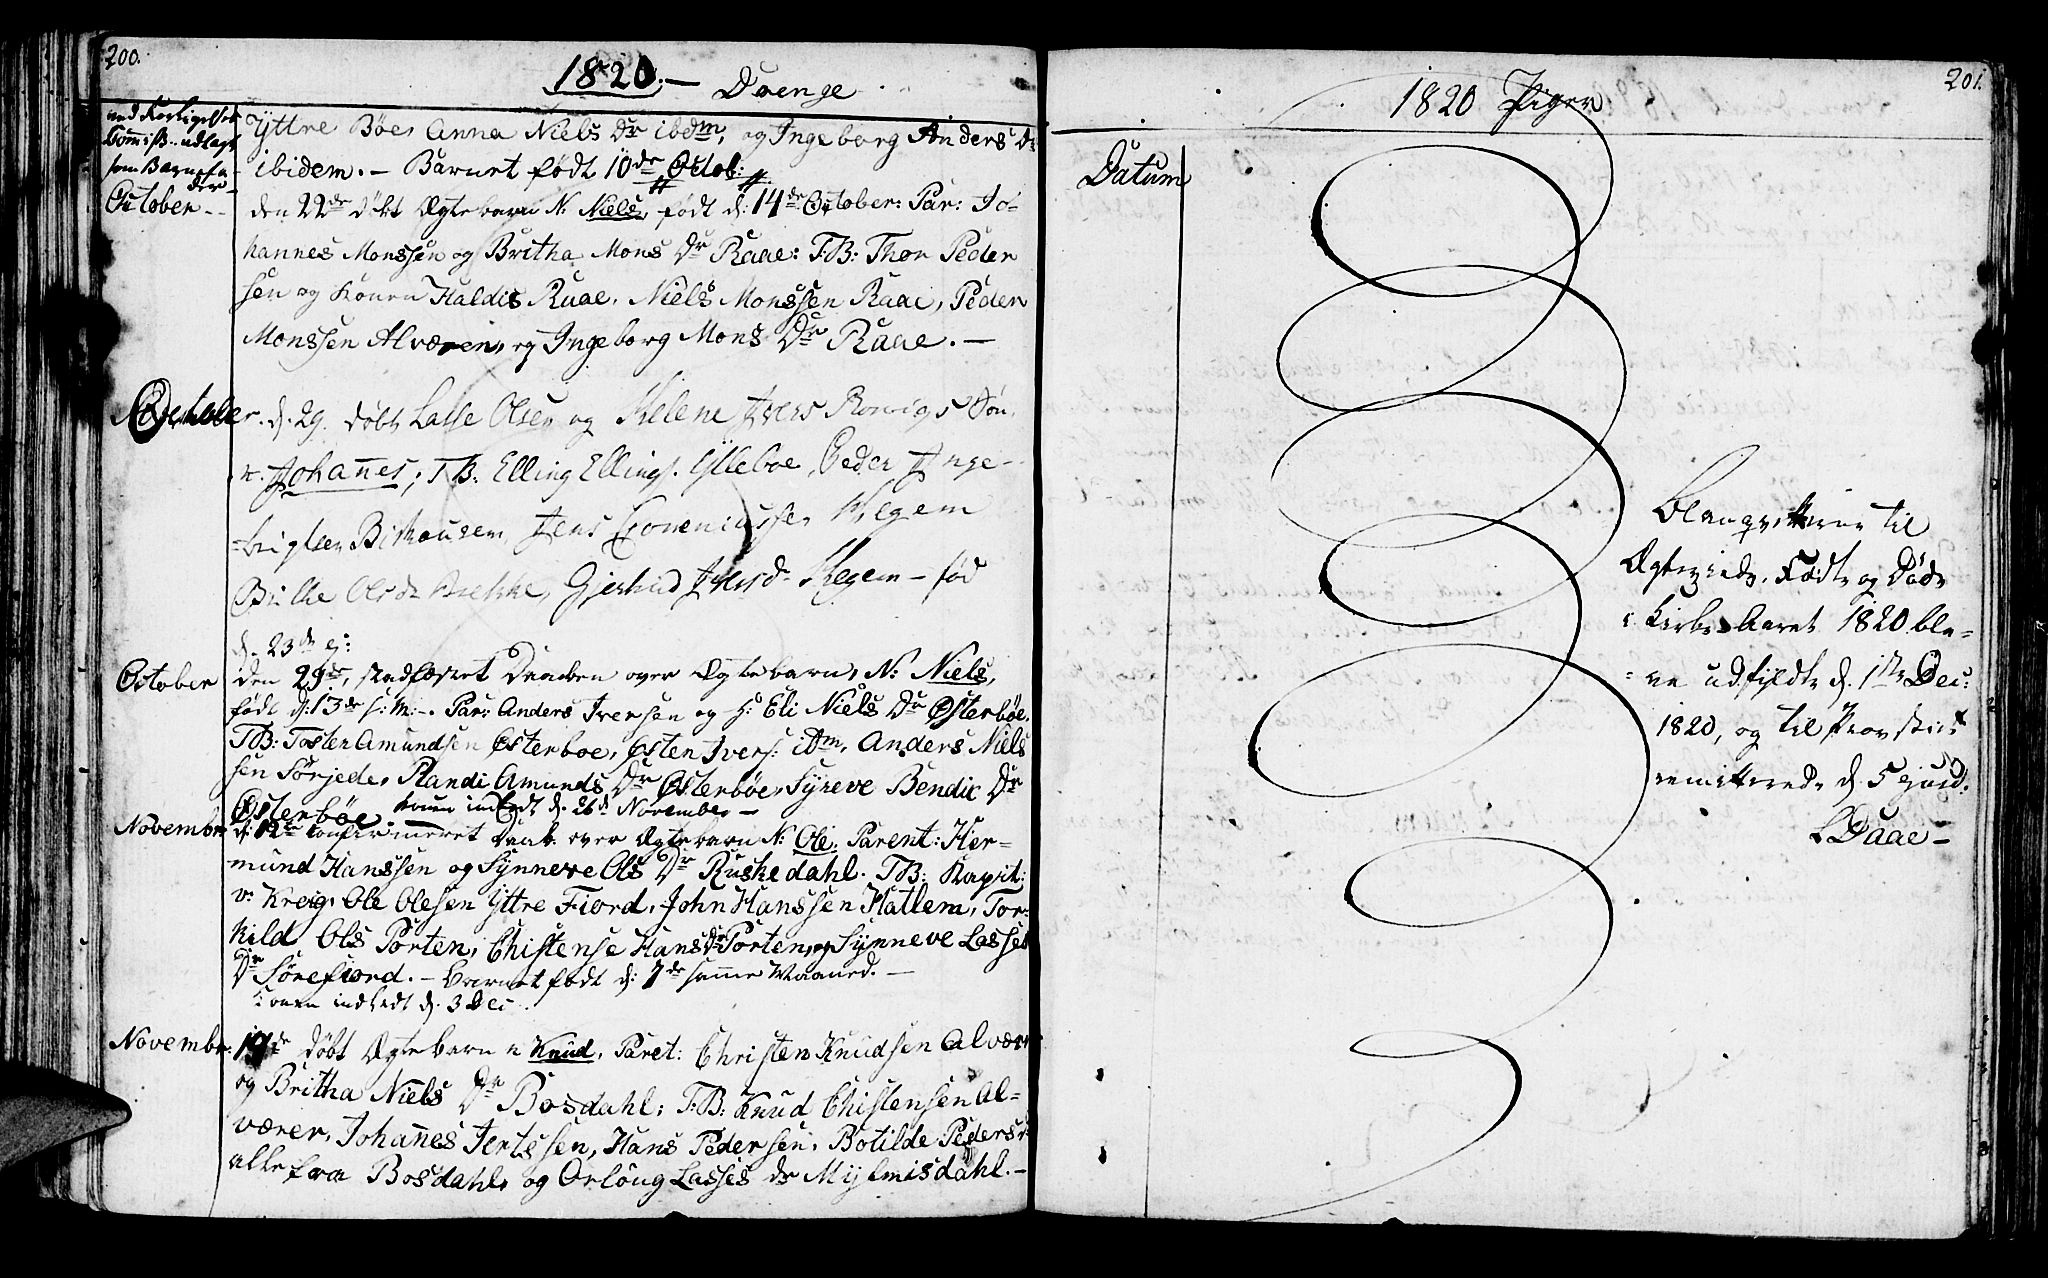 200.
1820. — Drenge
ved Forligelses
Commiss. udlagt
som Barnefa-
der —
Yttre Böe, Anna Niels Dr ibdm, og Ingeborg Anders Dr
ibidem. — Barnet född 10de Octob:
October - -
den 22de döbt Ægte barn N: Niels, född d: 14de October: Par: Jo-
hannes Monssen og Britha Mons Dr Raae: T:B: Thor Peder
sen og konen Haldis Raae, Niels Monssen Raae, Peder
Monssen Alværen, og Ingeborg Mons Dr Raae. —
October. d. 29. döbt Lasse Olsen og Helene Ivers Sön
n. Johannes; T.B: Elling Ellings. Ytteboe, Peder Inge-
Jens Hegem
Olsdr Brekke, Gjertrud Iversd. Hegem — fød
d. 23de ej:
October den 29de, stadfæstet Daaben over Ægte barn, N: Niels,
född d: 13de s: M: —. Par: Anders Iversen og H: Eli Niels Dr Österböe.
T.B: Tosten Amundsen Österboe, Östen Ivers: ibm, Anders Niels
sen Sörjede, Randi Amunds Dr Österböe, Syneve Bendic Dr
Österböe. Konen indledt d. 26de November —
Novembr. d: 12te confirmeret Daab over Ægte barn N: Ole. Parent: Her-
mund Hanssen og Synneve Ols Dr Ruskedahl. T.B: Kapit:
v: Kreig, Ole Olesen Yttre Fiord, John Hanssen Hatlem, Tor-
kild Ols Porten, Christense Hans Dr Porten, og Synneve Lasses
Dr Sörefiord. — Barnet född d: 7de samme Maaned. —
Konen indledt d. 3 Dec
Novembr: 19de döbt Ægte barn n Knud, Paret: Christen Knudsen Alvær
og Britha Niels Dr Bosdahl; T:B: Knud Christensen Al-
væren, Johañes Jertssen, Hans Pedersen, Botilde Peders dr
alle fra Bosdahl, og Orloug Lasses dr Myhmisdahl. —
201.
1820 Piger
Datum
til
Ægteviede, Födte og Döde
i Kirke Aaret 1820 ble-
= ve udfyldte d. 1ste Dec:
1820, og til Provstiet
remitterede d. 5 ejusd:
L Daae —